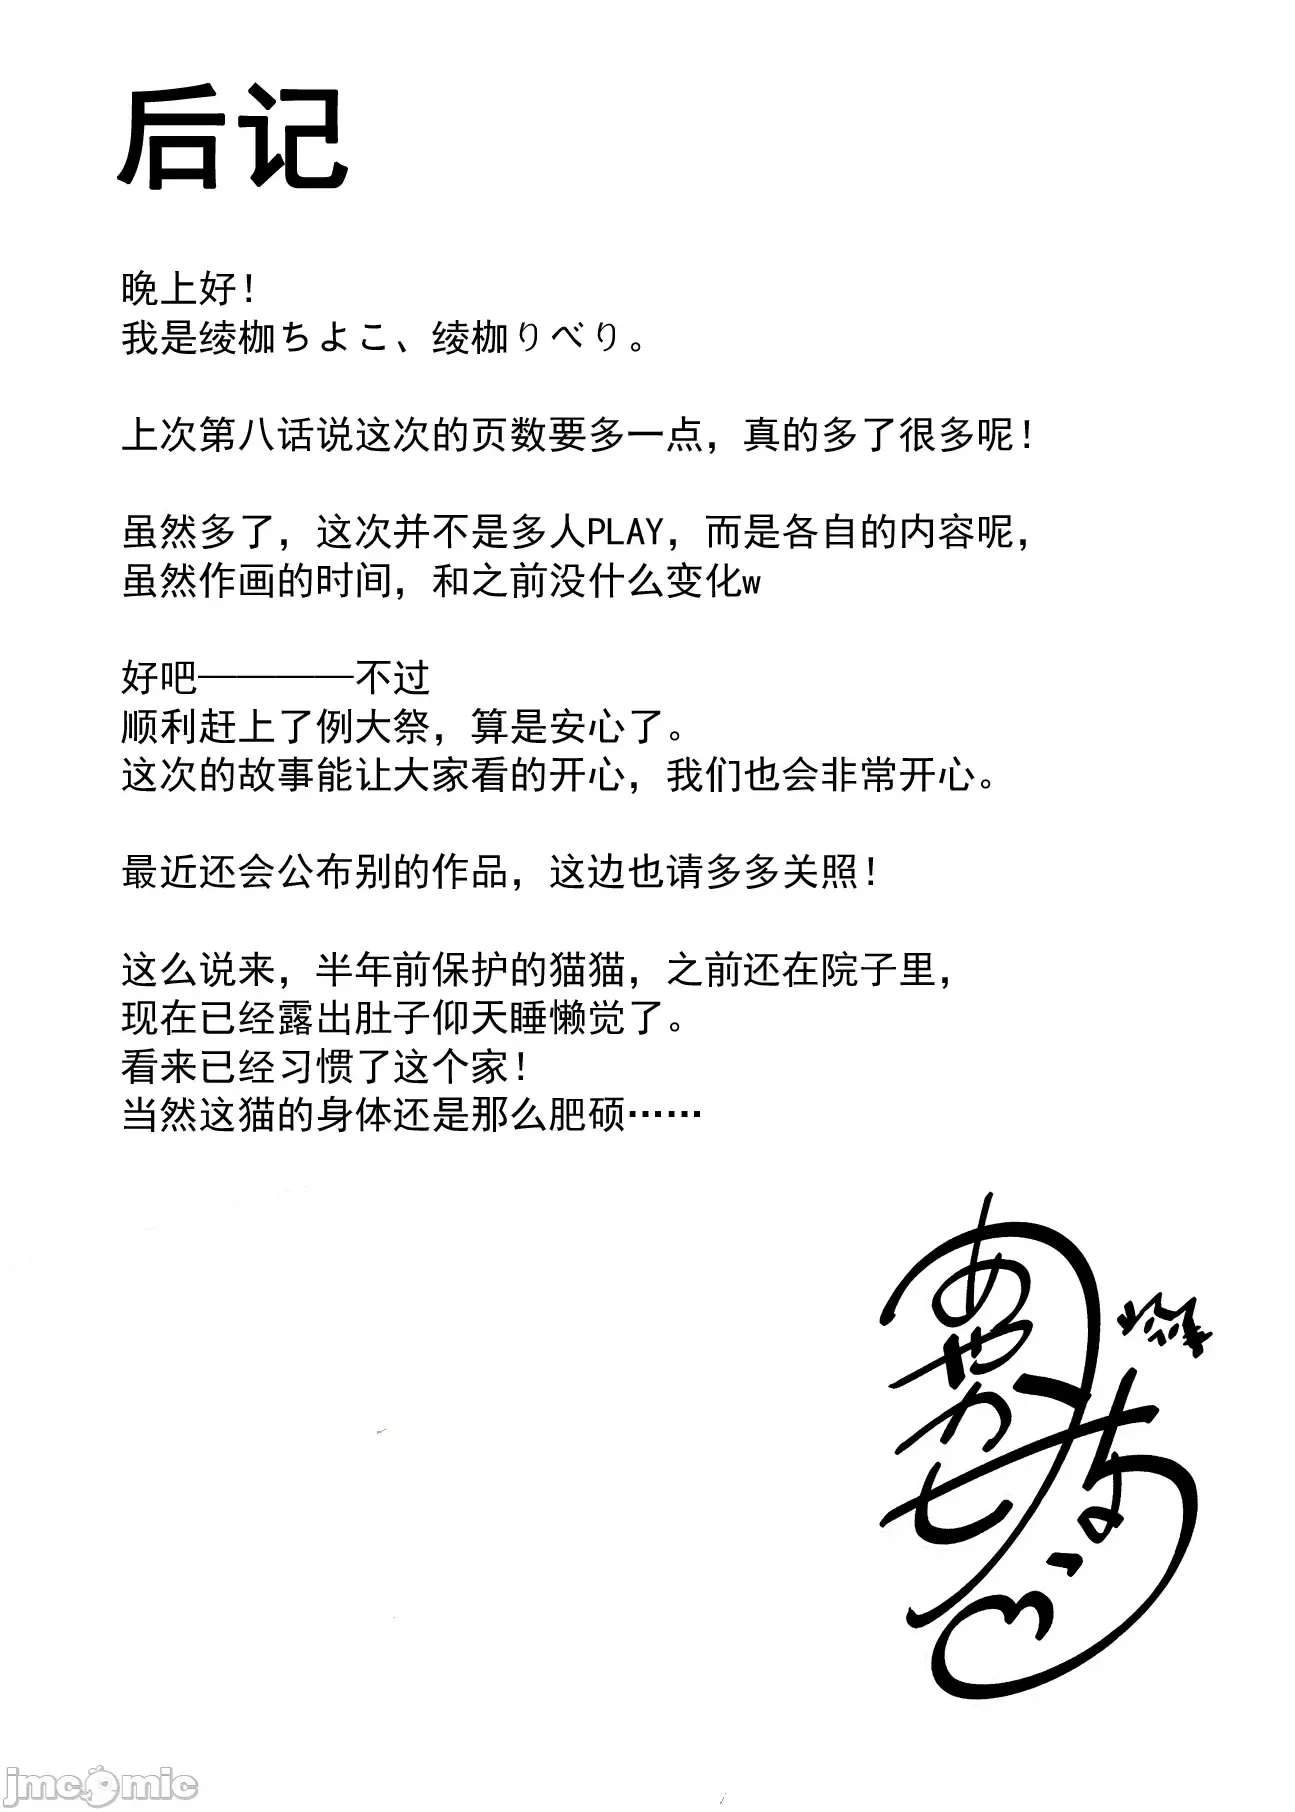 后记
晚上好！
我是绫枷ちよこ、绫枷りべり。
上次第八话说这次的页数要多一点，真的多了很多呢！
虽然多了，这次并不是多人PLAY，而是各自的内容呢，
虽然作画的时间，和之前没什么变化w
好吧————不过
顺利赶上了例大祭，算是安心了。
这次的故事能让大家看的开心，我们也会非常开心。
最近还会公布别的作品，这边也请多多关照！
这么说来，半年前保护的猫猫，之前还在院子里，
现在已经露出肚子仰天睡懒觉了。
看来已经习惯了这个家！
当然这猫的身体还是那么肥硕……
jmcomic